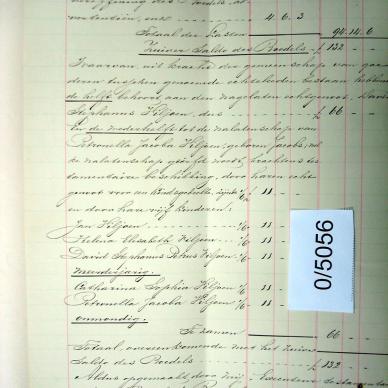 advertentien, enz 4.6.3
Totaal der Lasten 94.14.6
Zuiver Saldo des Boedels £ 132 - -
Waarvan uit kracht der gemeenschap van goe
deren tusschen genoemde echtelieden bestaan hebbende
de helft behoort aan den nagelaten echtgenoot, David
Stephanus Viljoen, dus £ 66 - -
En de wederhelft tot de nalatenschap van
Petronella Jacoba Viljoen, geboren Jacobs, uit
testamentaire beschikking, door haren echt
genoot voor een kindsgedeelte, zijnde 1/6 £ 11 - -
en door hare vijf kinderen:
Jan Viljoen 1/6 - 11 - -
Helena Elisabeth Viljoen 1/6 - 11 - -
David Stephanus Petrus Viljoen 1/6 - 11 - -
meerderjarig.
Catharina Sophia Viljoen 1/6 - 11 - -
Petronella Jacoba Viljoen 1/6 - 11 - -
onmondig.
Te zamen 66 - -
Totaal, overeenkomende met het Zuiver
Saldo des Boedels £ 132 - -
Aldus opgemaakt door mij
0/5056